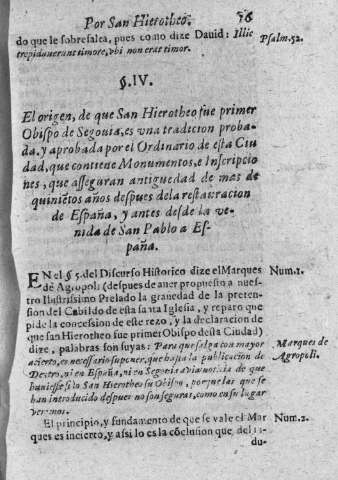 Por San Hierotheo. 56
do que le sobresalea, pues como dize Dauid: Illic
trepidauerunt timore, vbi non erat timor.
Psalm. 52.
§. IV.
El origen, de que San Hierotheo fue primer
Obispo de Segouia, es vna tradicion proba-
da, y aprobada por el Ordinario de esta Ciu
dad, que contiene Monumentos, e Inscripcio
nes, que asseguran antiguedad de mas de
quinietos años despues de la restauracion
de España, y antes desde la ve-
nida de San Pablo a Es-
paña.
EN el § 5. del Discurso Historico dize el Marques
de Agropoli (despues de auer propuesto a nues-
tro Ilustrissimo Prelado la grauedad de la preten-
sion del Cabildo de esta santa Iglesia, y reparo que
pide la concession de este rezo, y la declaracion de
que san Hierotheo fue primer Obispo desta Ciudad)
dize, palabras son suyas: Para que salga con mayor
acierto, es necessario suponer, que hasta la publicacion de
Dextro, ni en España, ni en Segouia auia noticia de que
huuiesse sido San Hierotheo su Obispo, porque las que se
han introducido despues no son seguras, como en su lugar
veremos.
Num. 1.
Marques de
Agropoli.
El principio, y fundamento de que se vale el Mar
ques es incierto, y assi lo es la cōclusion que del sa-
Num. 2.
du-